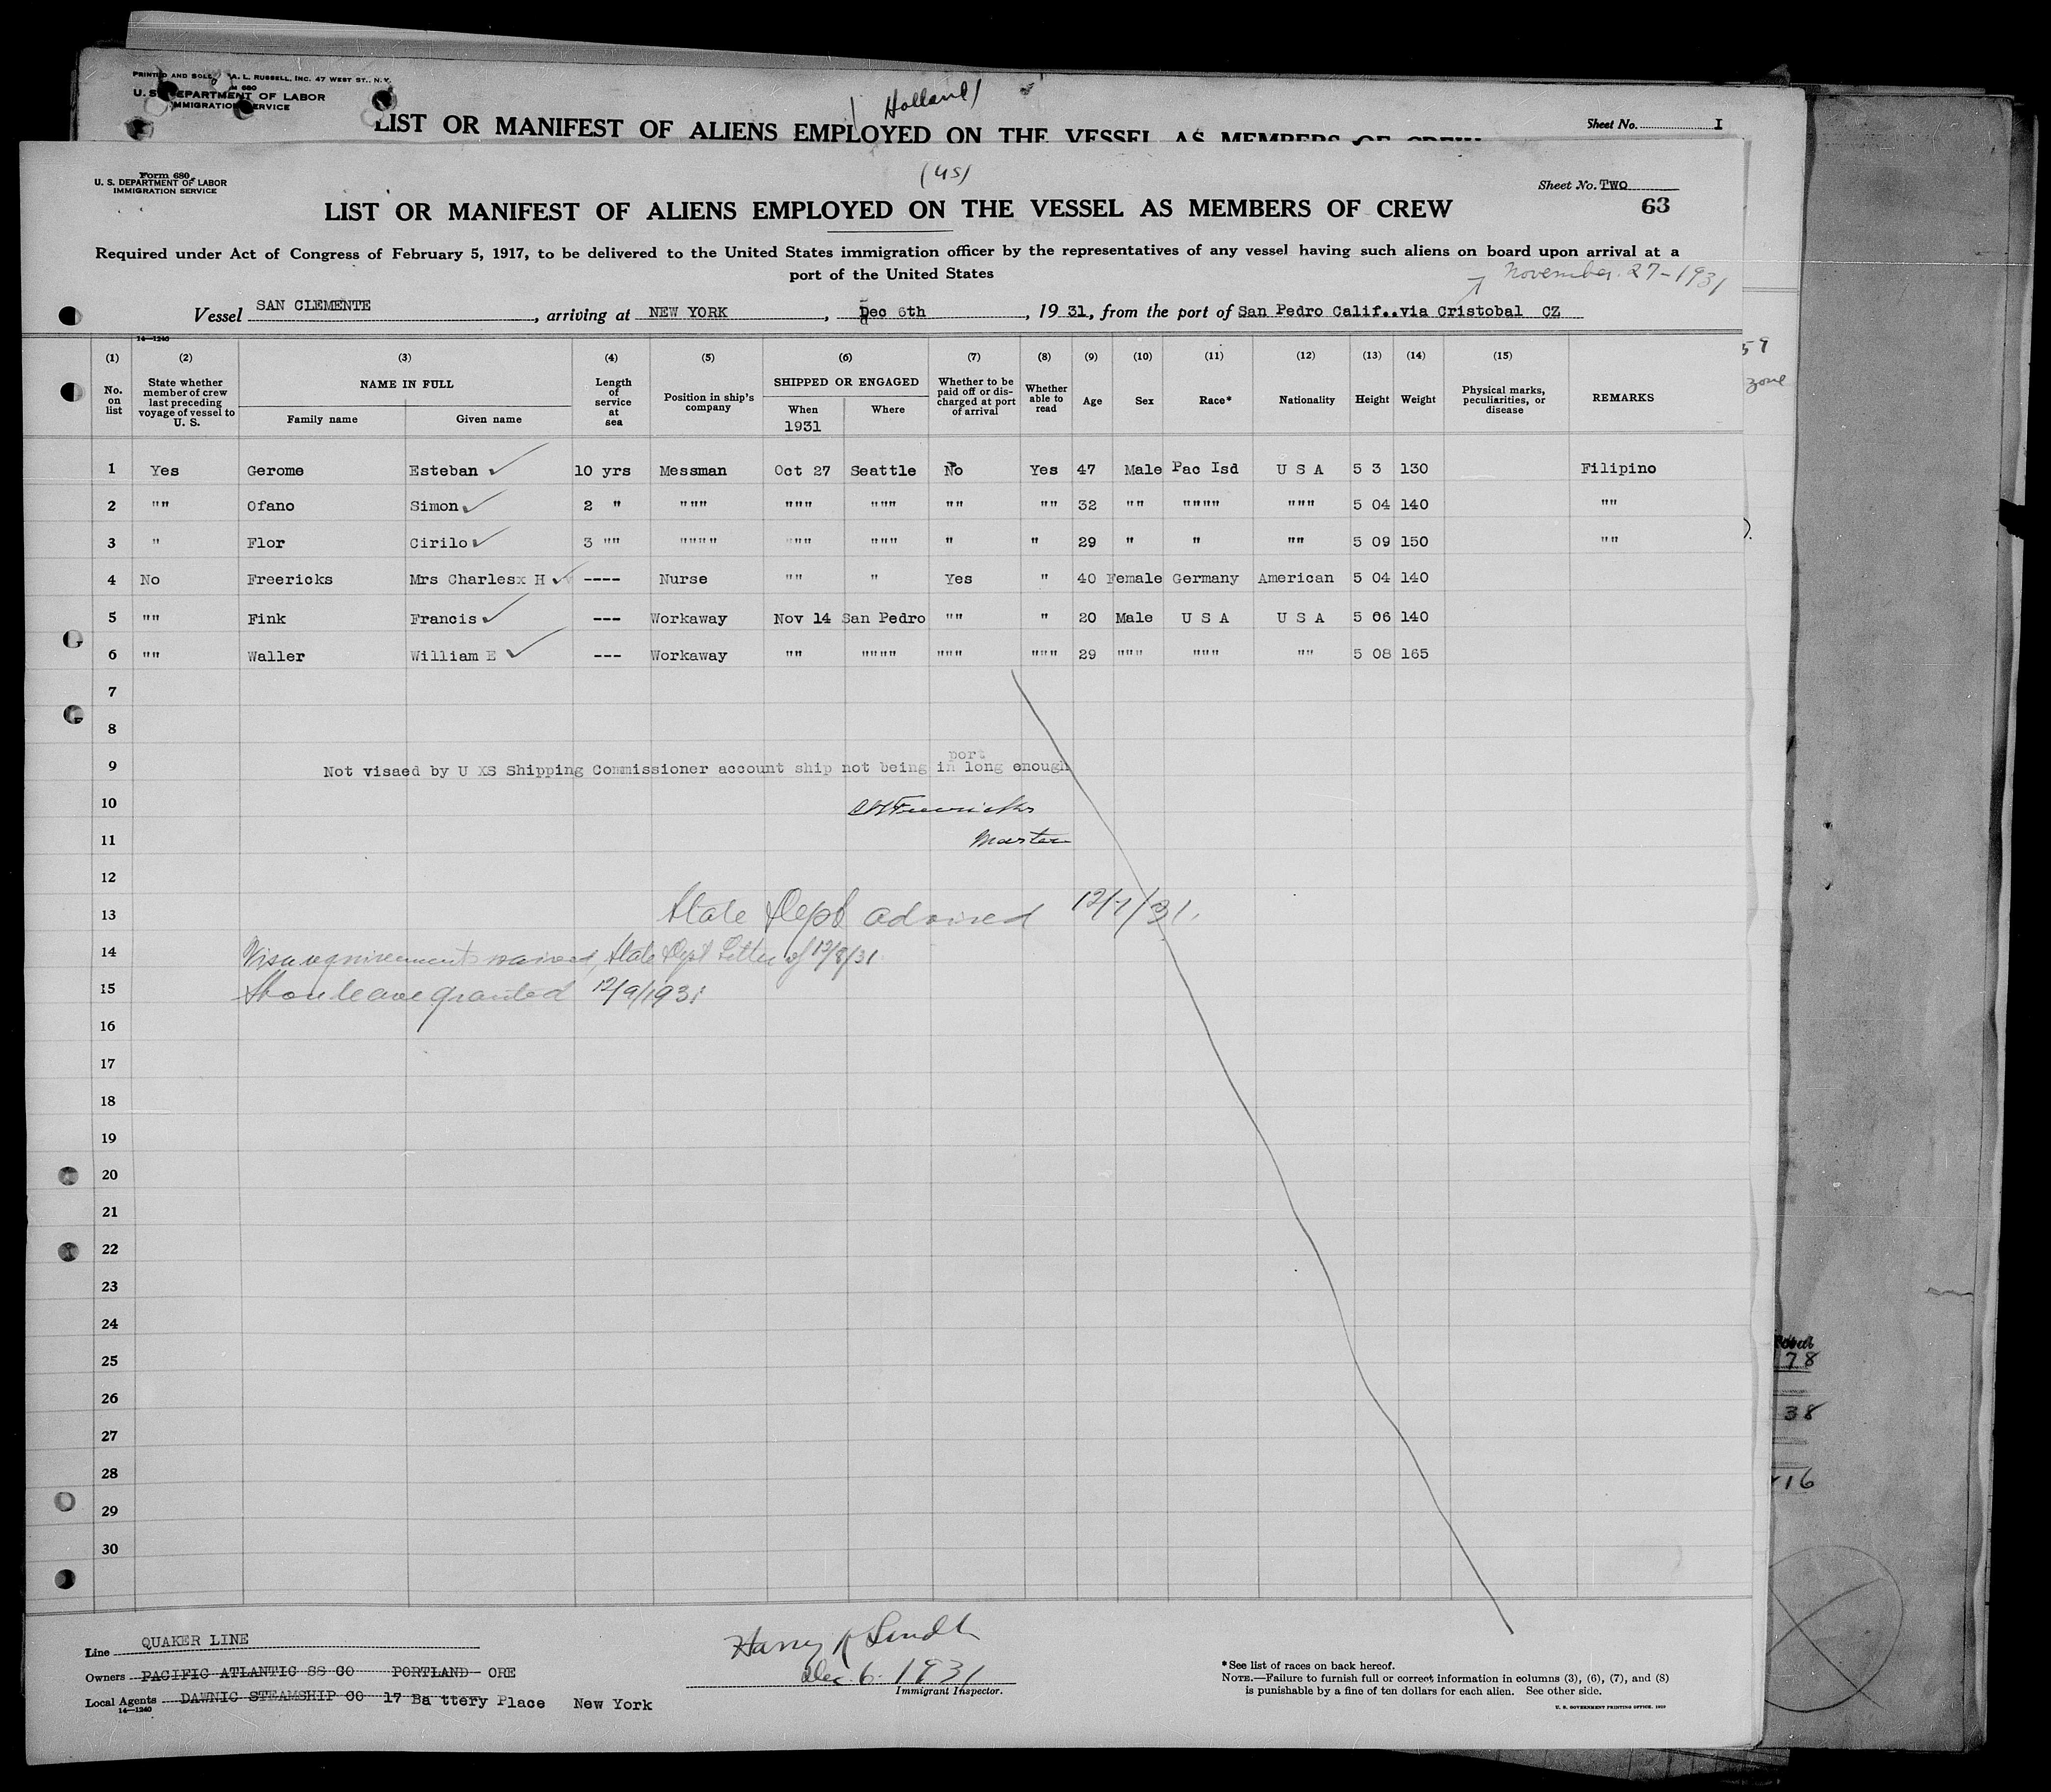 PRINTED AND SOLD A. L. RUSSELL, INC. 47 WEST ST., N.Y.
U. S. DEPARTMENT OF LABOR
IMMIGRATION SERVICE
Holland
LIST OR MANIFEST OF ALIENS EMPLOYED ON THE VESSEL AS MEMBERS OF CREW
Sheet No. I
Form 680
U. S. DEPARTMENT OF LABOR
IMMIGRATION SERVICE
(US)
Sheet No. Two
63
LIST OR MANIFEST OF ALIENS EMPLOYED ON THE VESSEL AS MEMBERS OF CREW
Required under Act of Congress of February 5, 1917, to be delivered to the United States immigration officer by the representatives of any vessel having such aliens on board upon arrival at a
port of the United States
November 27-1931
Vessel SAN CLEMENTE, arriving at NEW YORK, Dec 6th, 1931, from the port of San Pedro Calif..via Cristobal CZ
14—1240
(1) (2) (3) (4) (5) (6) (7) (8) (9) (10) (11) (12) (13) (14) (15)
No. on list State whether member of crew last preceding voyage of vessel to U. S. NAME IN FULL Family name Given name Length of service at sea Position in ship's company SHIPPED OR ENGAGED When 1931 Where Whether to be paid off or discharged at port of arrival Whether able to read Age Sex Race* Nationality Height Weight Physical marks, peculiarities, or disease REMARKS
1 Yes Gerome Esteban 10 yrs Messman Oct 27 Seattle No Yes 47 Male Pac Isd U S A 5 3 130 Filipino
2 "" Ofano Simon 2 " """ """ """ "" "" 32 "" """" """ 5 04 140 ""
3 " Flor Cirilo 3 "" """" """ """ " " 29 " " "" 5 09 150 ""
4 No Freericks Mrs Charlesx H ---- Nurse "" " Yes " 40 Female Germany American 5 04 140
5 "" Fink Francis --- Workaway Nov 14 San Pedro "" " 20 Male U S A U S A 5 06 140
6 "" Waller William E --- Workaway "" """" """ """ 29 """ """ "" 5 08 165
7
8
port
9 Not visaed by U XS Shipping Commissioner account ship not being in long enough
10 CH Freericks
11 Master
12
13 State Dept advised 12/7/31.
14 Visa requirements waived, State Dept Letter of 12/8/31
15 Shore leave granted 12/9/1931
16
17
18
19
20
21
22
23
24
25
26
27
28
29
30
59
zone
78
38
16
Line QUAKER LINE
Owners PACIFIC ATLANTIC SS CO PORTLAND ORE
Local Agents DAWNIC STEAMSHIP CO 17 Ba ttery Place New York
14—1240
Harry R Lindh
Dec. 6. 1931
Immigrant Inspector.
*See list of races on back hereof.
NOTE.—Failure to furnish full or correct information in columns (3), (6), (7), and (8)
is punishable by a fine of ten dollars for each alien. See other side.